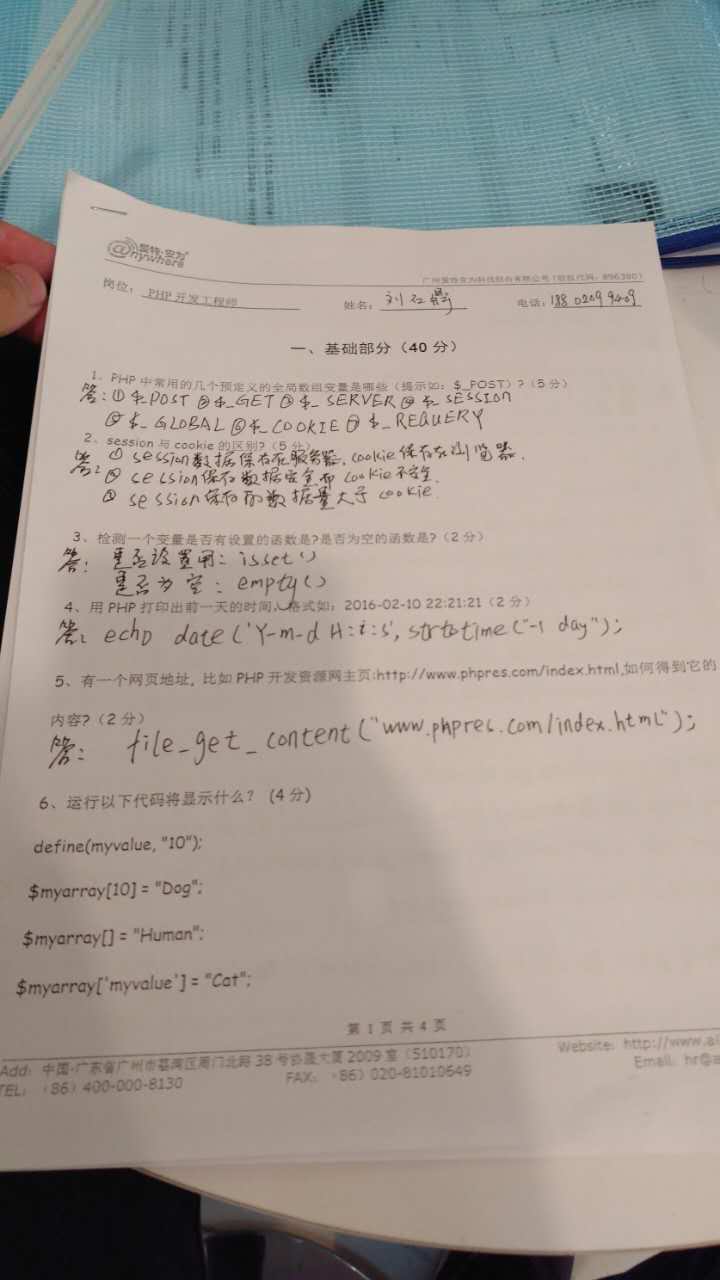 爱特·安为
@nywhere
广州爱特安为科技股份有限公司(股权代码:896390)
岗位: PHP 开发工程师 姓名: 刘 电话: 188 0209 9409
一、基础部分(40 分)
1、PHP 中常用的几个预定义的全局数组变量是哪些(提示如:$_POST)?(5 分)
答:① $_POST ② $_GET ③ $_SERVER ④ $_SESSION
⑤ $_GLOBAL ⑥ $_COOKIE ⑦ $_REQUERY
2、session 与 cookie 的区别?(5 分)
答: ① session数据保存在服务器,cookie保存在浏览器.
② session保存数据安全而cookie不安全.
③ session保存的数据量大于cookie.
3、检测一个变量是否有设置的函数是?是否为空的函数是?(2 分)
答: 是否设置用: isset()
是否为空: empty()
4、用 PHP 打印出前一天的时间,格式如:2016-02-10 22:21:21(2 分)
答: echo date('Y-m-d H:i:s', strtotime("-1 day");
5、有一个网页地址, 比如 PHP 开发资源网主页:http://www.phpres.com/index.html,如何得到它的
内容?(2 分)
答: file_get_content("www.phpres.com/index.html");
6、运行以下代码将显示什么? (4 分)
define(myvalue, "10");
$myarray[10] = "Dog";
$myarray[] = "Human";
$myarray['myvalue'] = "Cat";
第 1 页 共 4 页
Add: 中国·广东省广州市荔湾区周门北路 38 号 大厦 2009 室(510170) Website: http://www.a
TEL: (86)400-000-8130 FAX: (86)020-81010649 Email: hr@a